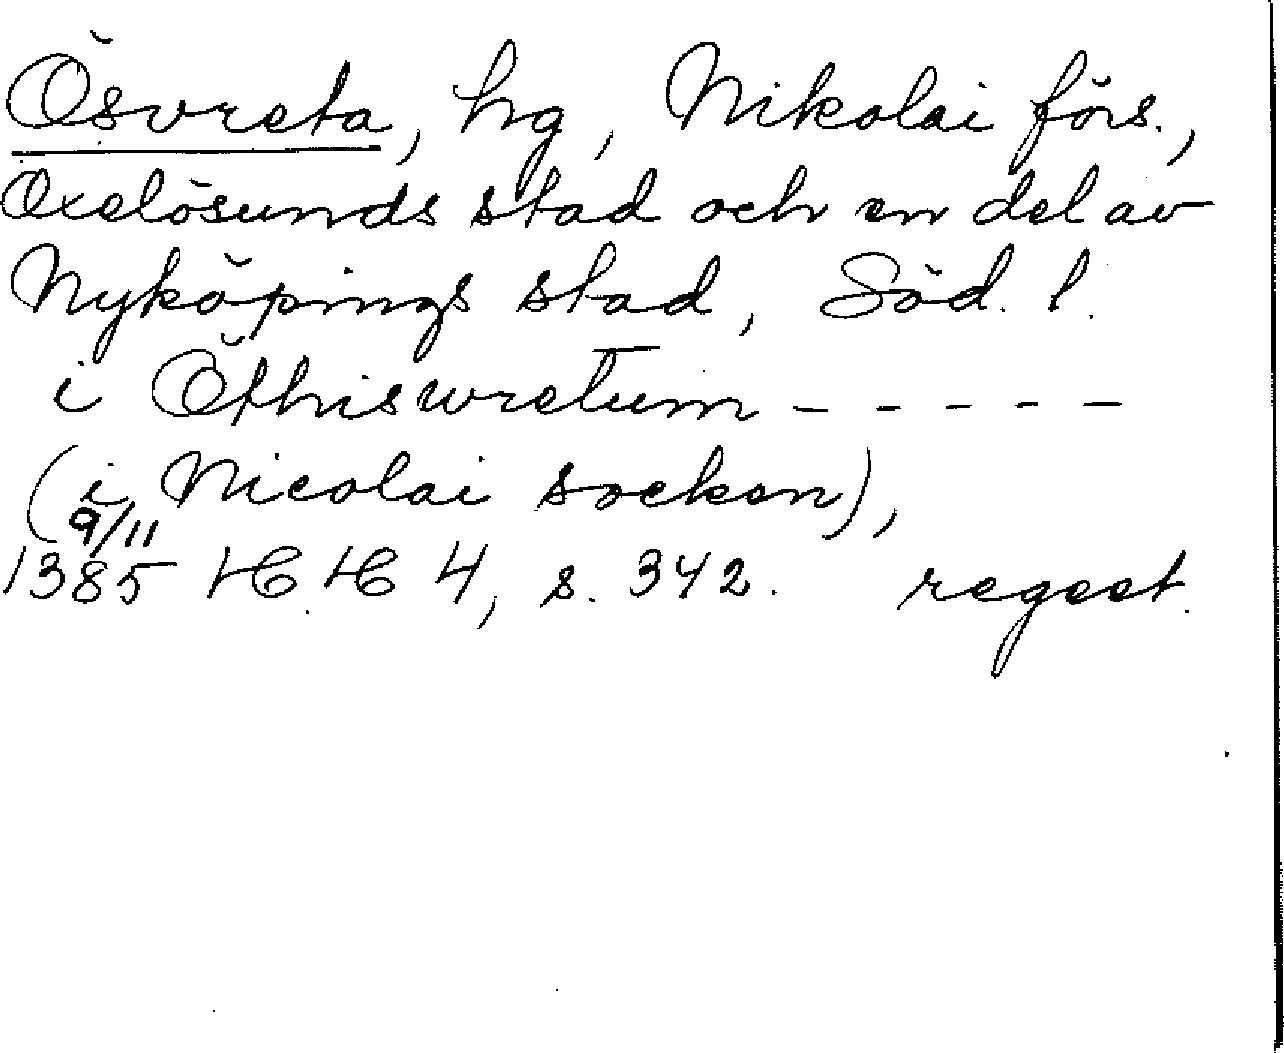 Ösvreta, hg, Nikolai förs.,
Oxelösunds stad och en del av
Nyköpings stad, Söd. l.
i Öthiswretum - - - - -
(i Nicolai socken),
9/11
1385 HH 4, s. 342. regest.